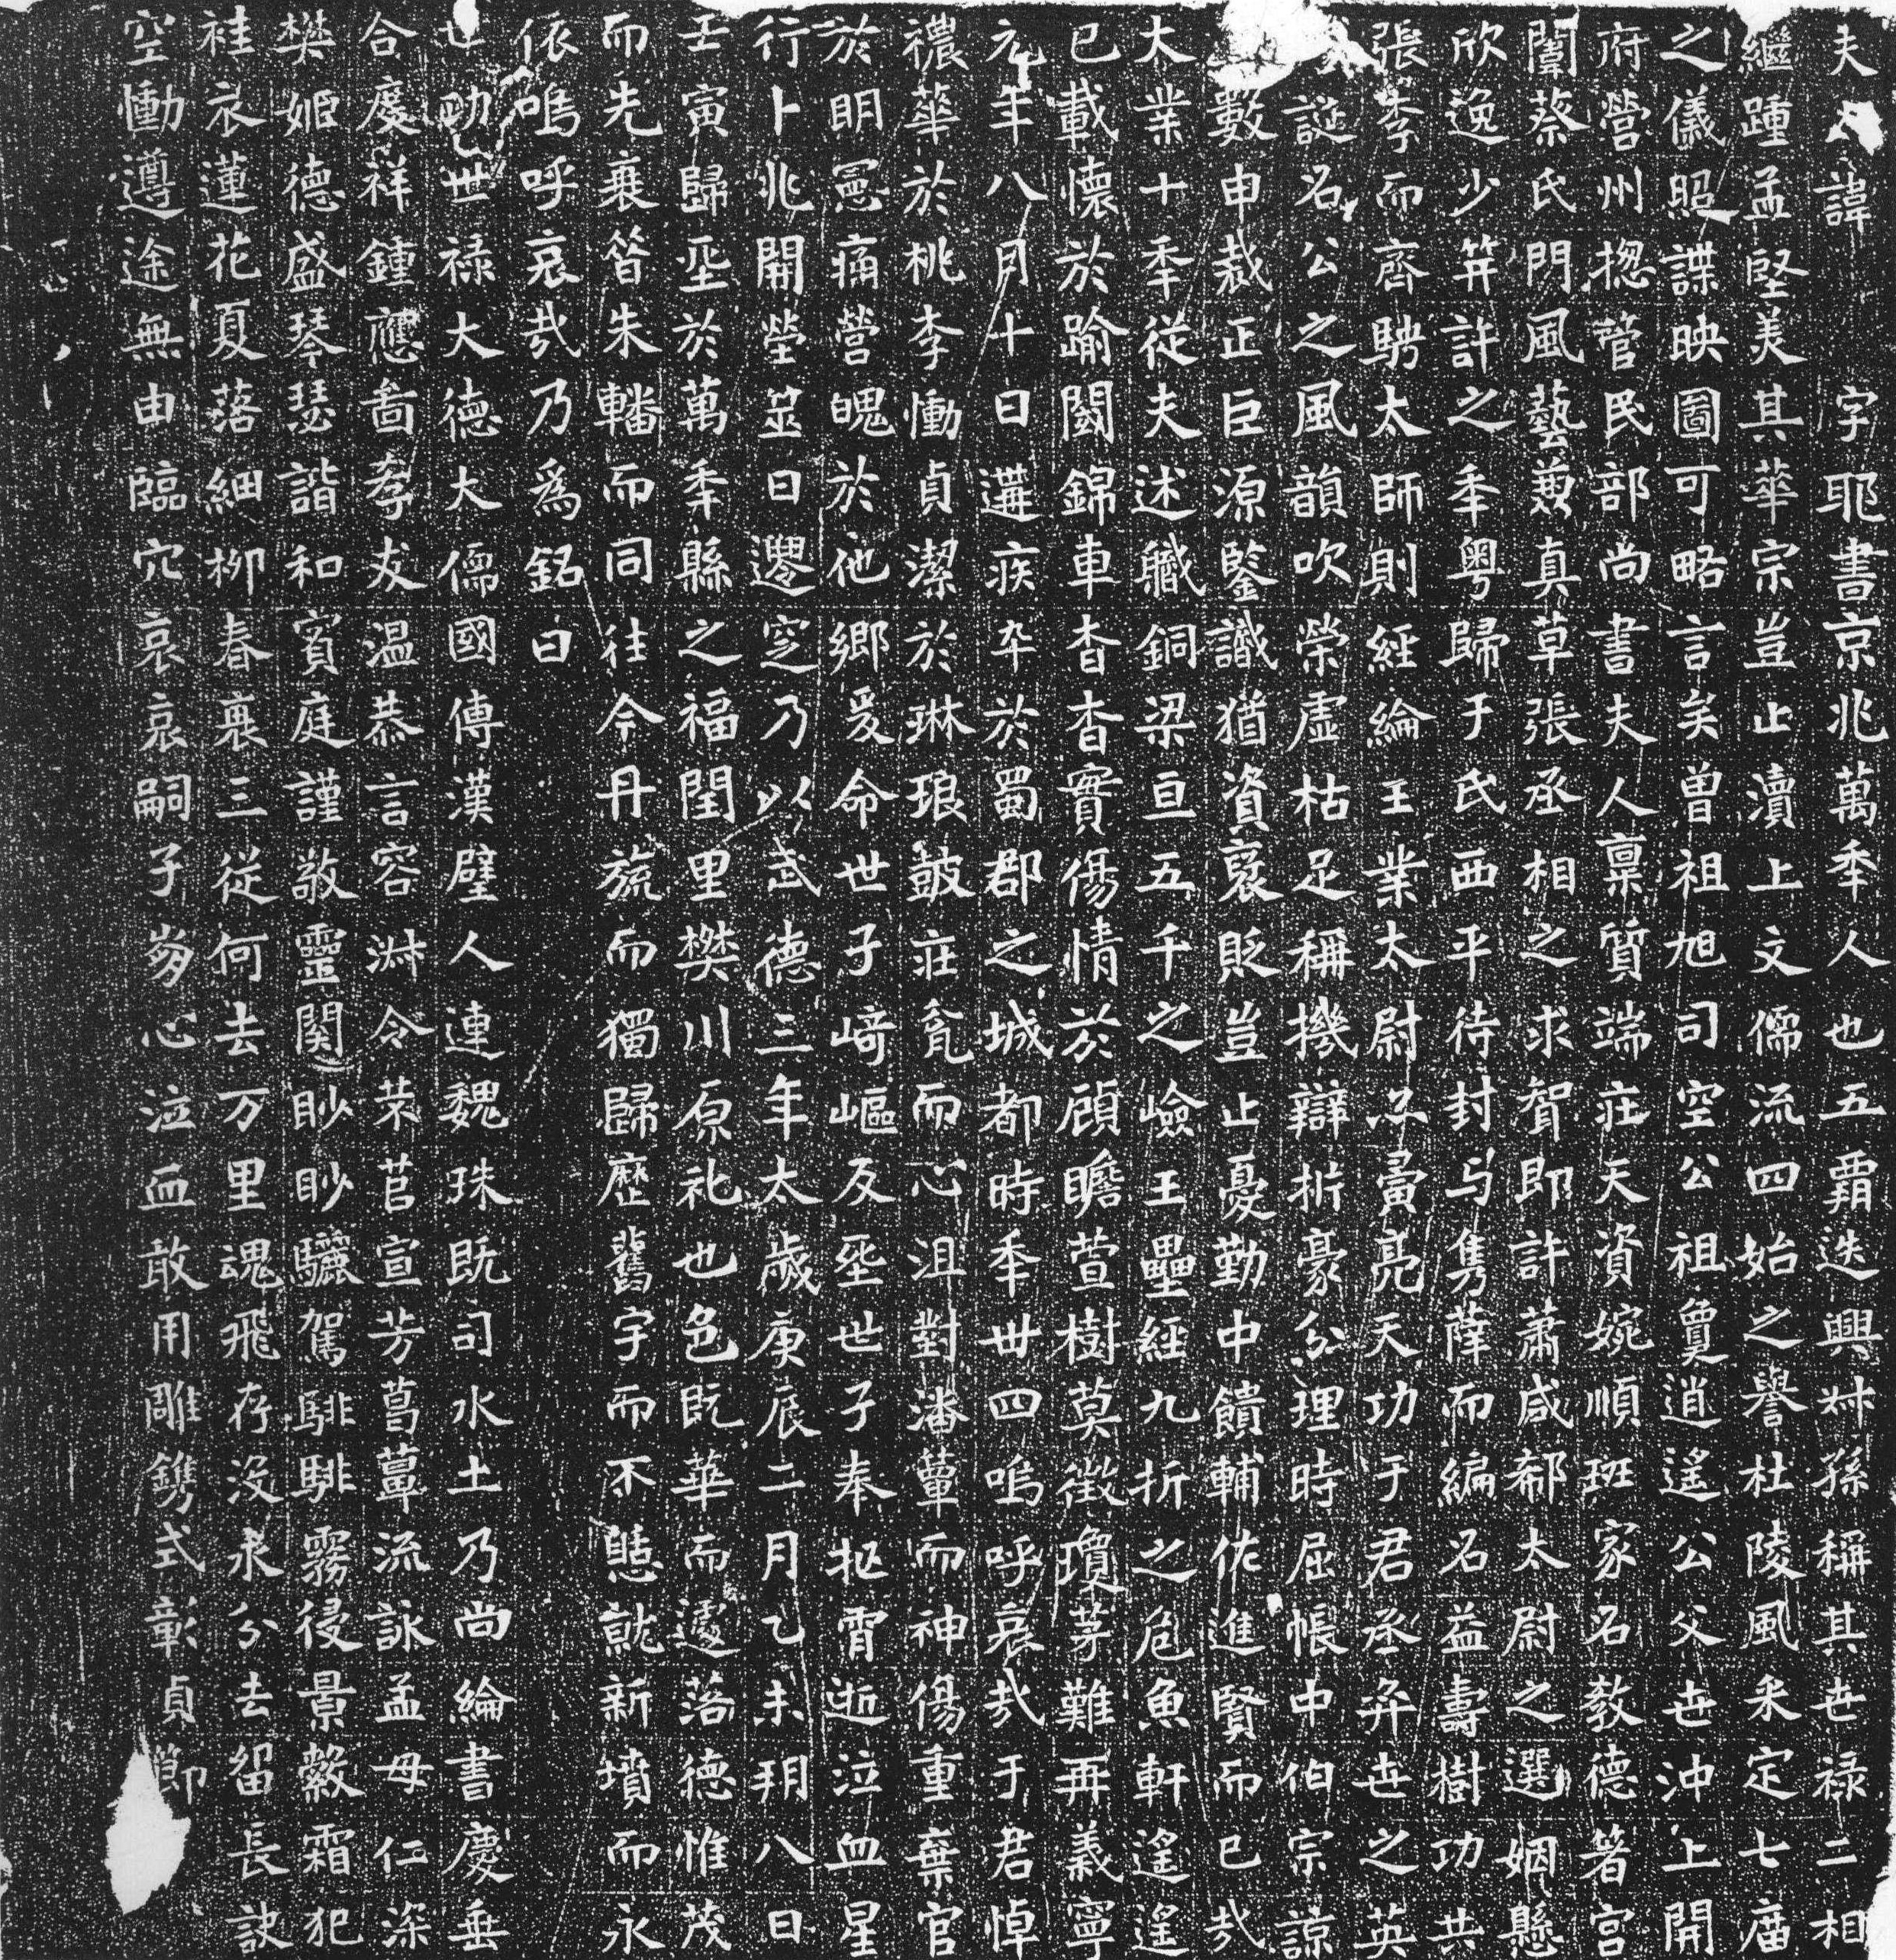 夫人諱 字耶書京兆萬秊人也五霸迭興叔孫稱其世祿二相
繼踵孟堅美其華宗豈止瀆上文儒流四始之譽杜陵風采定七庿
之儀照諜映圖可略言矣曽祖旭司空公祖敻逍遙公父世沖上開
府營州揔管民部尚書夫人稟質端莊天資婉順班家名教德著宮
闈蔡氏門風藝兼真草張丞相之求賀即許蕭咸郗太尉之選姻懸
欣逸少笄許之秊粤歸于氏西平待封与隽薛而編名益壽樹功共
張李而齊騁太師則經綸王業太尉亦寅亮天功于君丞弈世之英
誕名公之風韻吹榮虛枯足稱機辯析豪分理時屈帳中伯宗諒
數申裁正臣源鑒識猶資裒貶豈止憂勤中饋輔佐進賢而已㢤
太業十秊從夫述職銅梁亘五千之嶮王壘經九折之危魚軒遙遙
已載懷於踰閾錦車杳杳實傷情於顧瞻萱樹莫徵瓊茅難再義寧
元年八月十日遘疾卒於蜀郡之城都時秊丗四嗚呼哀㢤于君悼
禯華於桃李慟貞潔於琳琅皷莊瓮而心沮對潘簟而神傷重棄官
於明憲痛營魄於他鄉爰命世子崎嶇反𦵏世子奉柩霄逝泣血星
行卜兆開塋筮日遷窆乃以武德三年太歲庚辰二月乙未朔八日
壬寅歸𦵏於萬秊縣之福閏里樊川原礼也色既華而邃落德惟茂
而先衰昝朱轓而同往今丹旐而獨歸歷舊宇而不憩就新墳而永
依嗚呼哀㢤乃爲銘曰
世功世祿大德大儒國傳漢璧人連魏珠既司水土乃尚綸書慶垂
合度祥鍾應啚孝友温恭言容淋令茱苢宣芳菖蕈流詠孟母仁深
樊姬德盛琴瑟諧和賓庭謹敬靈関眇眇驪駕騑騑霧侵景縠霜犯
袿衣蓮花夏落細柳春衰三從何去万里魂飛存没永分去留長訣
空慟遵途無由臨穴哀哀嗣子芻心泣血敢用雕鐫式彰貞節